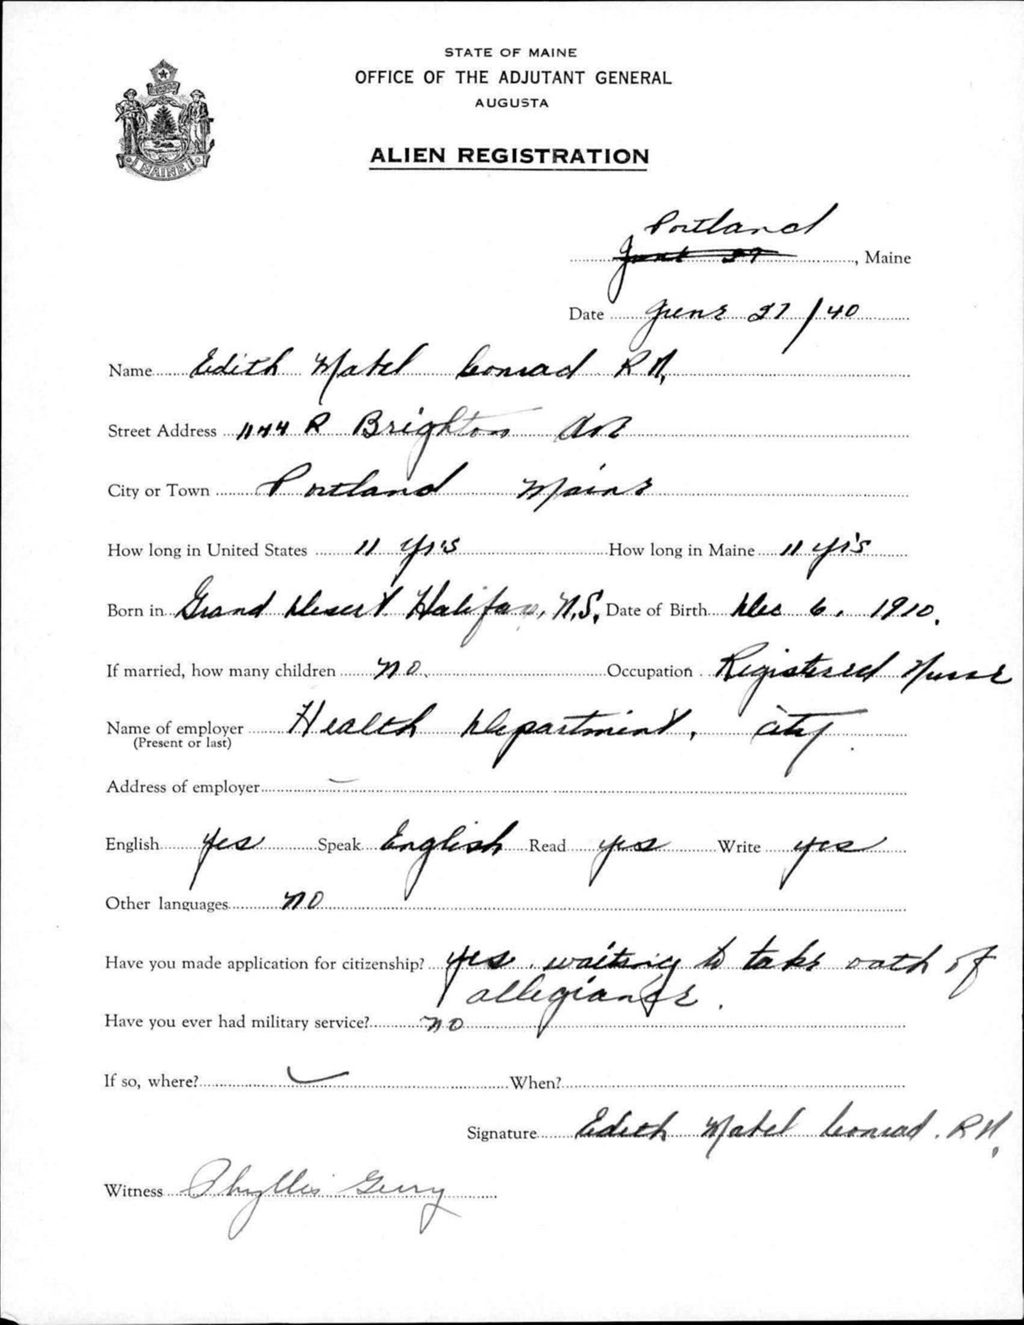 STATE OF MAINE
OFFICE OF THE ADJUTANT GENERAL
AUGUSTA
ALIEN REGISTRATION
MAINE
Portland
June 27, Maine
Date June 27/40
Name Edith Mabel Conrad R N.
Street Address R Brighton Ave
City or Town Portland Maine
How long in United States 11 yrs How long in Maine 11 yrs
Born in Grand Desert Halifax, N.S. Date of Birth Dec 6, 1910.
If married, how many children no. Occupation Registered Nurse
Name of employer Health Department, City
(Present or last)
Address of employer —
English yes Speak English Read yes Write yes
Other languages no
Have you made application for citizenship? yes. waiting to take oath of
allegiance.
Have you ever had military service? no
If so, where? When?
Signature Edith Mabel Conrad. R N.
Witness Phyllis Gerry